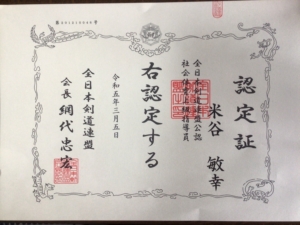 認定証
米谷敏幸
全日本剣道連盟公認
社会体育上級指導員
右認定する
令和五年三月五日
全日本剣道連盟
会長 網代忠宏